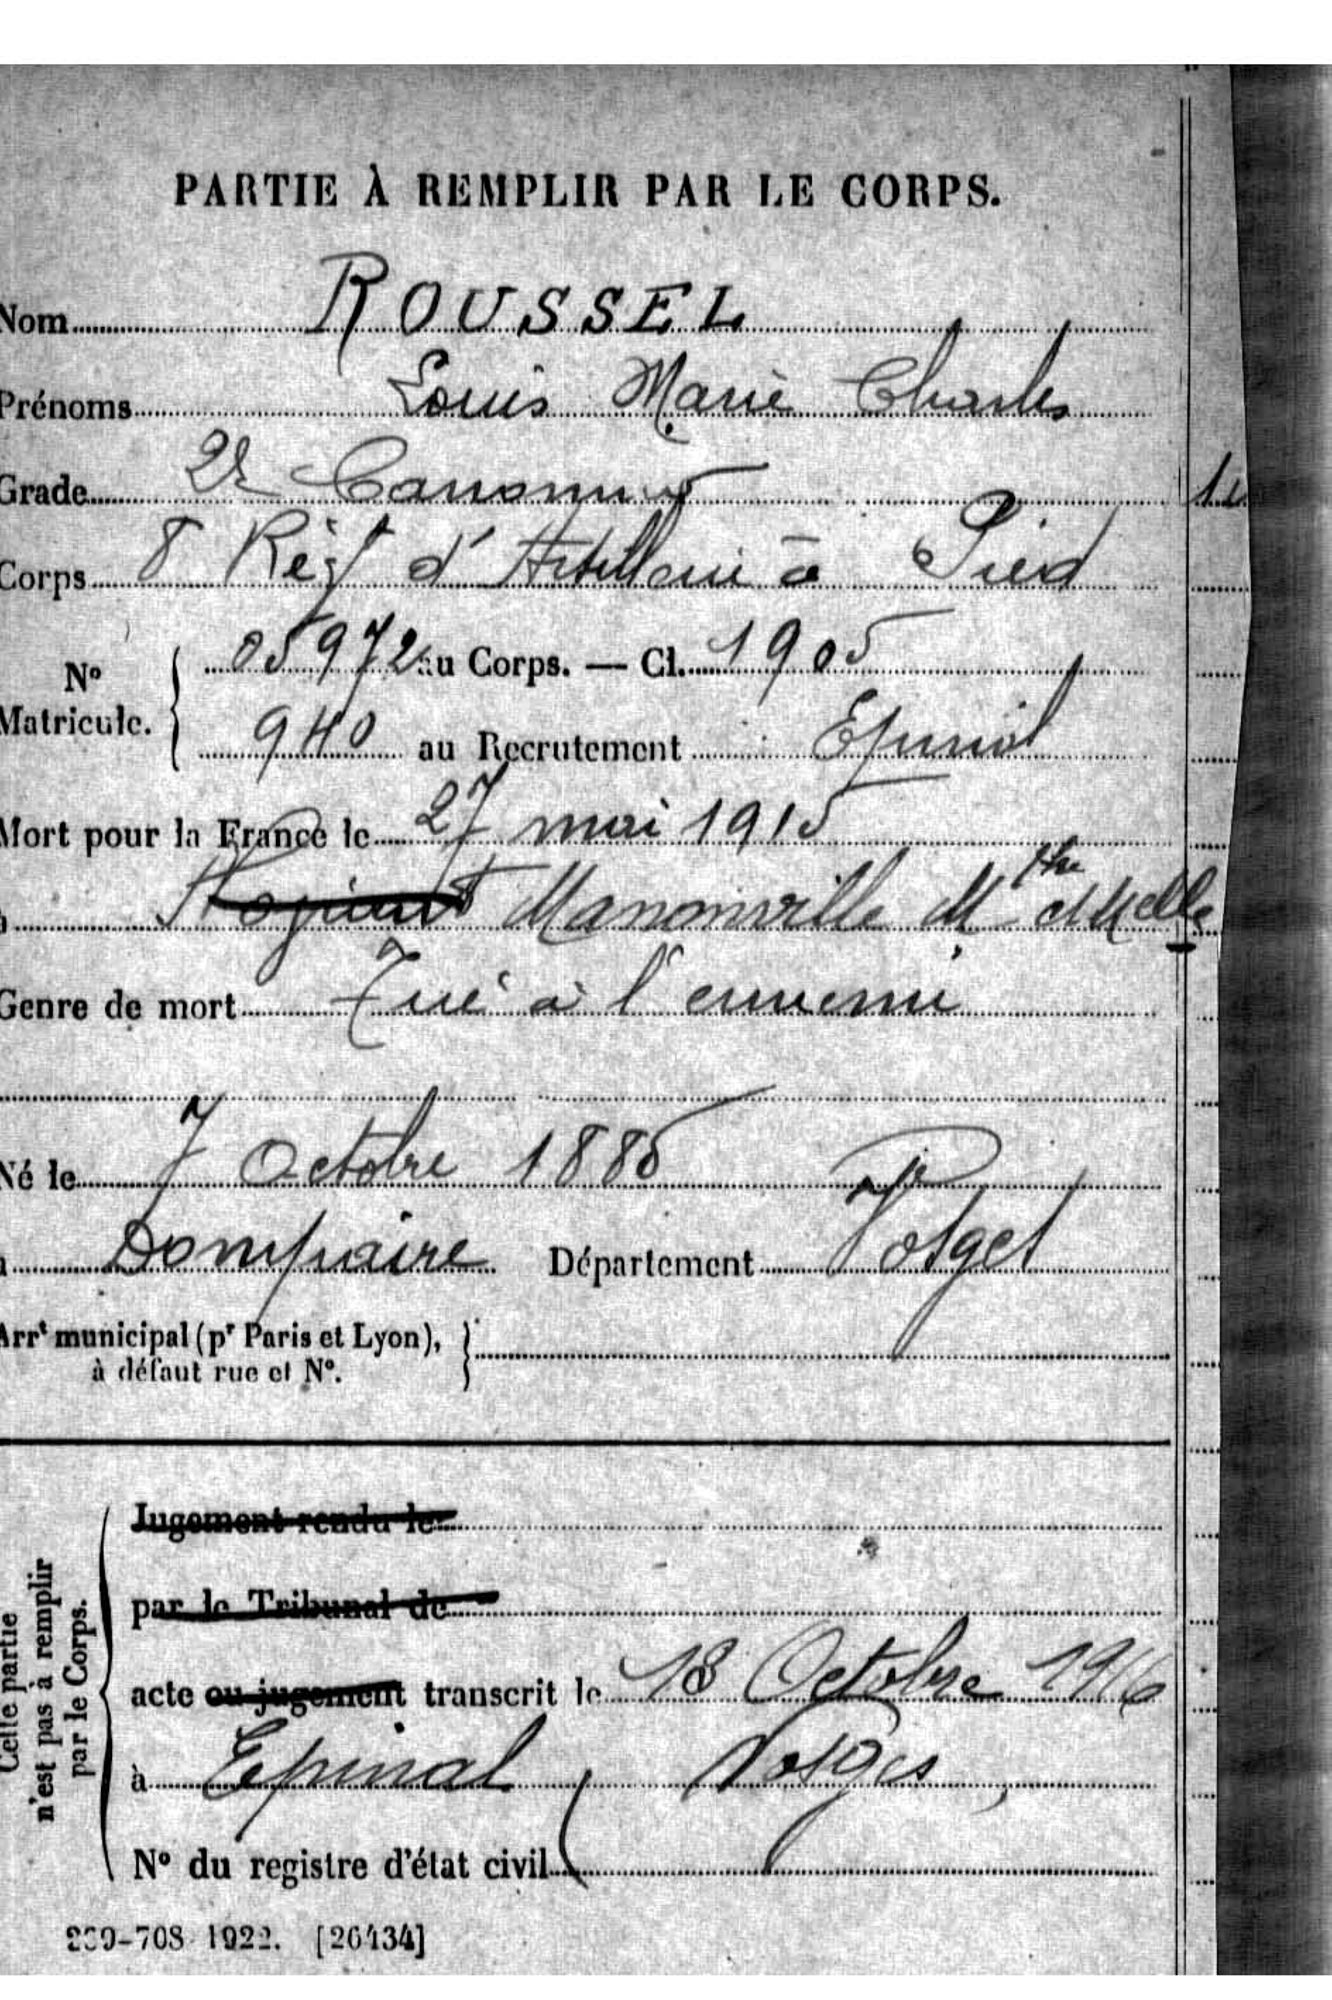 PARTIE À REMPLIR PAR LE CORPS.
Nom ROUSSEL
Prénoms Louis Marie Charles
Grade 2e Canonnier
Corps 8 Régt d'Artillerie à Pied
No Matricule. 05972 au Corps. — Cl. 1905
940 au Recrutement Epinal
Mort pour la France le 27 mai 1915
Manonville Mthe et Melle
Genre de mort Tué à l'ennemi
Né le 7 Octobre 1885
Dompaire Département Vosges
Arrt municipal (pr Paris et Lyon),
à défaut rue et No.
Cette partie
n'est pas à remplir
par le Corps.
Jugement rendu le
par le Tribunal de
acte ou jugement transcrit le 18 Octobre 1916
à Epinal Vosges
No du registre d'état civil
-708 1922. [26434]